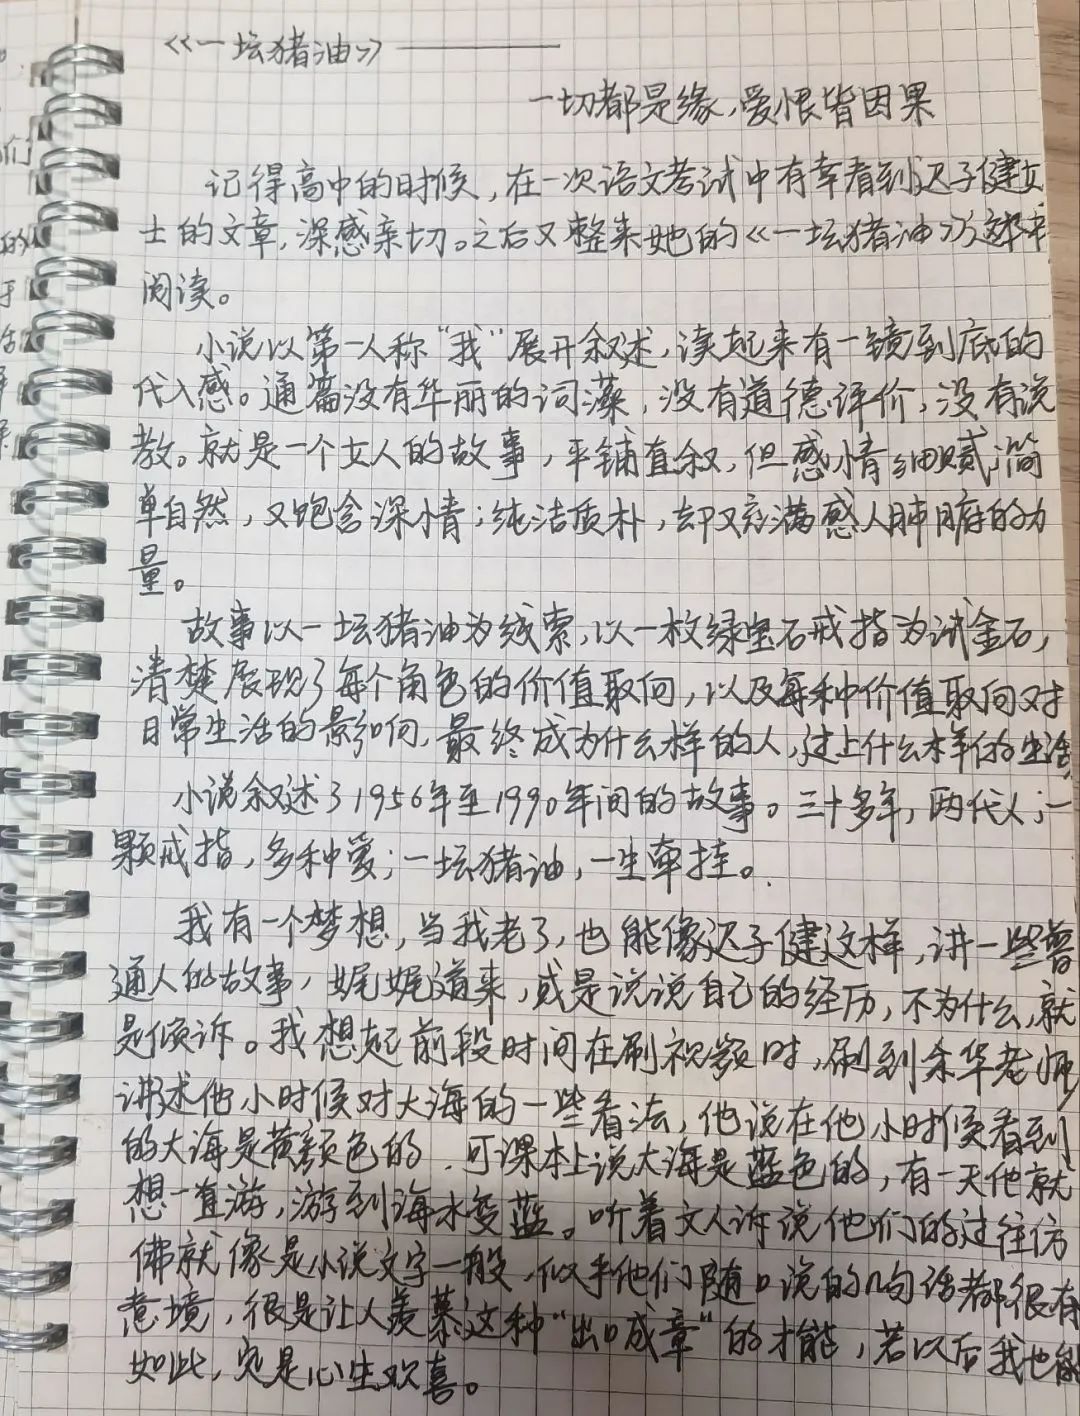 《一坛猪油》————
一切都是缘，爱恨皆因果
记得高中的时候，在一次语文考试中有幸看到迟子建女
士的文章，深感亲切。之后又整来她的《一坛猪油》这本书
阅读。
小说以第一人称“我”展开叙述，读起来有一镜到底的
代入感。通篇没有华丽的词藻，没有道德评价，没有说
教。就是一个女人的故事，平铺直叙，但感情细腻；简
单自然，又饱含深情；纯洁质朴，却又充满感人肺腑的力
量。
故事以一坛猪油为线索，以一枚绿宝石戒指为试金石，
清楚展现了每个角色的价值取向，以及每种价值取向对
日常生活的影响，最终成为什么样的人，过上什么样的生活
小说叙述了1956年至1990年间的故事。三十多年，两代人；一
颗戒指，多种爱；一坛猪油，一生牵挂。
我有一个梦想，当我老了，也能像迟子健这样，讲一些普
通人的故事，娓娓道来，或是说说自己的经历，不为什么，就
是倾诉。我想起前段时间在刷视频时，刷到余华老师
讲述他小时候对大海的一些看法，他说在他小时候看到
的大海是黄颜色的，可课本上说大海是蓝色的，有一天他就
想一直游，游到海水变蓝。听着文人诉说他们的过往仿
佛就像是小说文字一般，似乎他们随口说的几句话都很有
意境，很是让人羡慕这种“出口成章”的才能，若以后我也能
如此，定是心生欢喜。